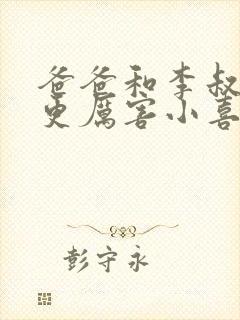 爸爸和李叔
更厲害小喜
彭守永